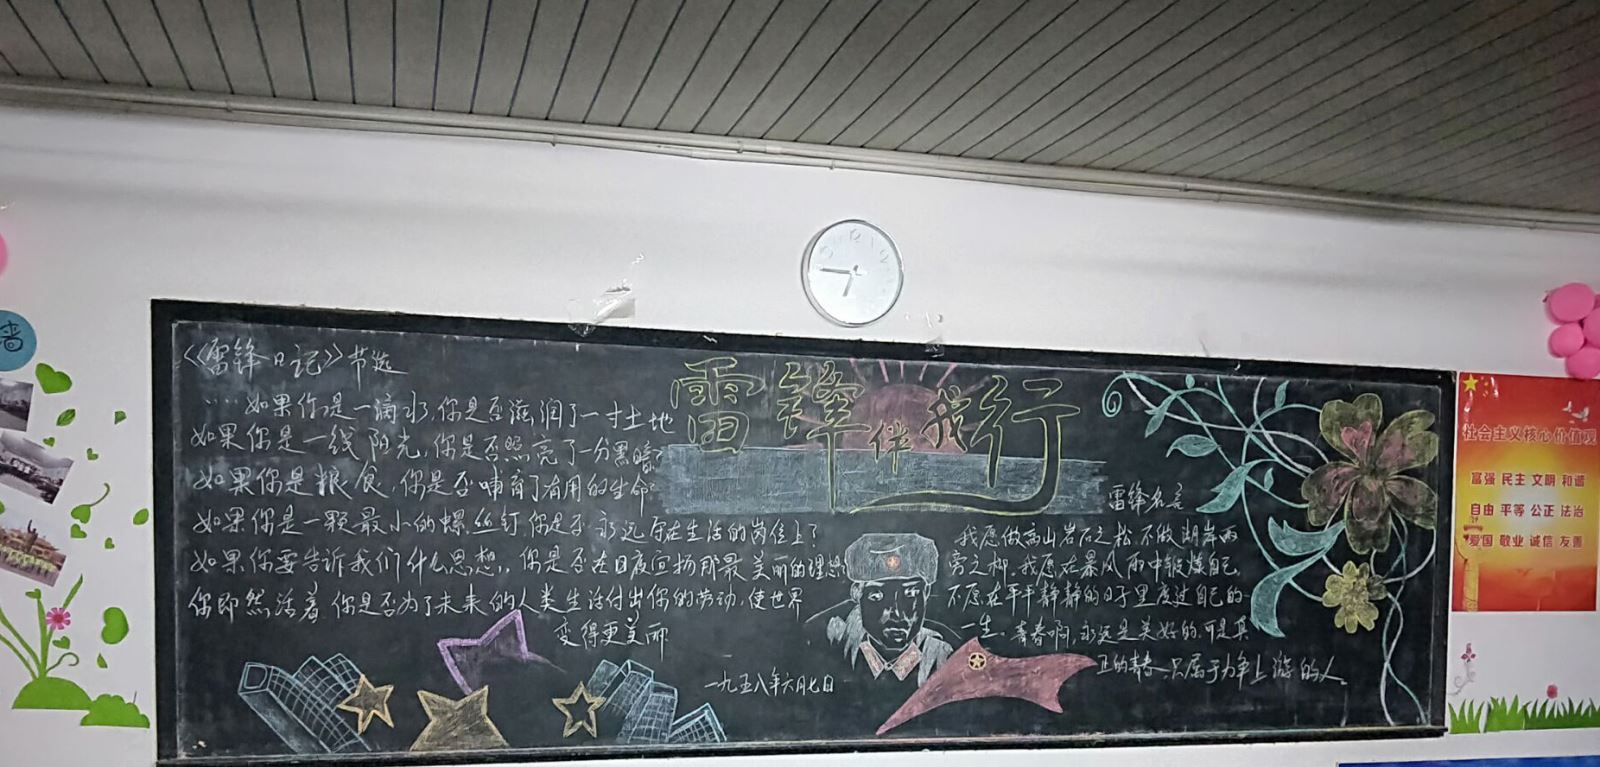 《雷锋日记》节选
……如果你是一滴水,你是否滋润了一寸土地
如果你是一线阳光,你是否照亮了一分黑暗
如果你是粮食,你是否哺育了有用的生命
如果你是一颗最小的螺丝钉,你是否永远守在生活的岗位上
如果你要告诉我们什么思想,你是否在日夜宣扬那最美丽的理想
你即然活着,你是否为了未来的人类生活付出你的劳动,使世界
变得更美丽
一九五八年六月七日
雷锋伴我行
雷锋名言
我愿做高山岩石之松,不做湖岸河
旁之柳,我愿在暴风雨中锻炼自己,
不愿在平平静静的日子里度过自己的
一生.青春啊,永远是美好的,可是真
正的青春只属于力争上游的人。
12
2
墙
社会主义核心价值观
富强 民主 文明 和谐
自由 平等 公正 法治
爱国 敬业 诚信 友善